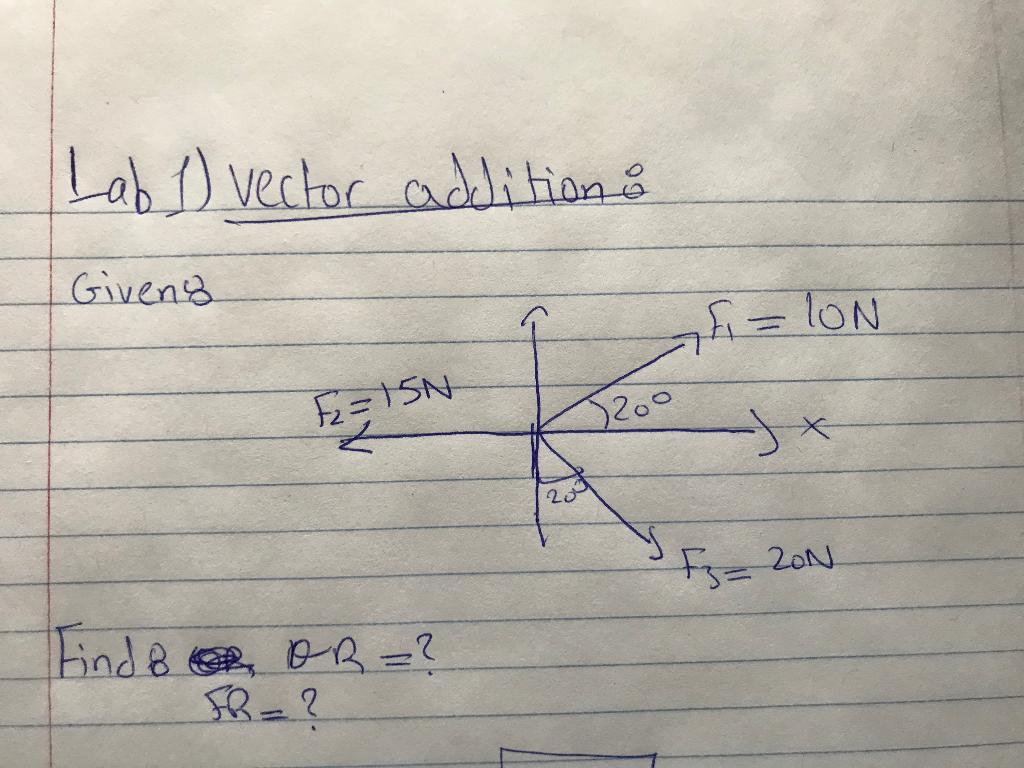 Lab 1) vector addition:
Given:
F₁ = 10N
F₂ = 15N
20°
x
20°
F₃ = 20N
Find: θR = ?
FR = ?